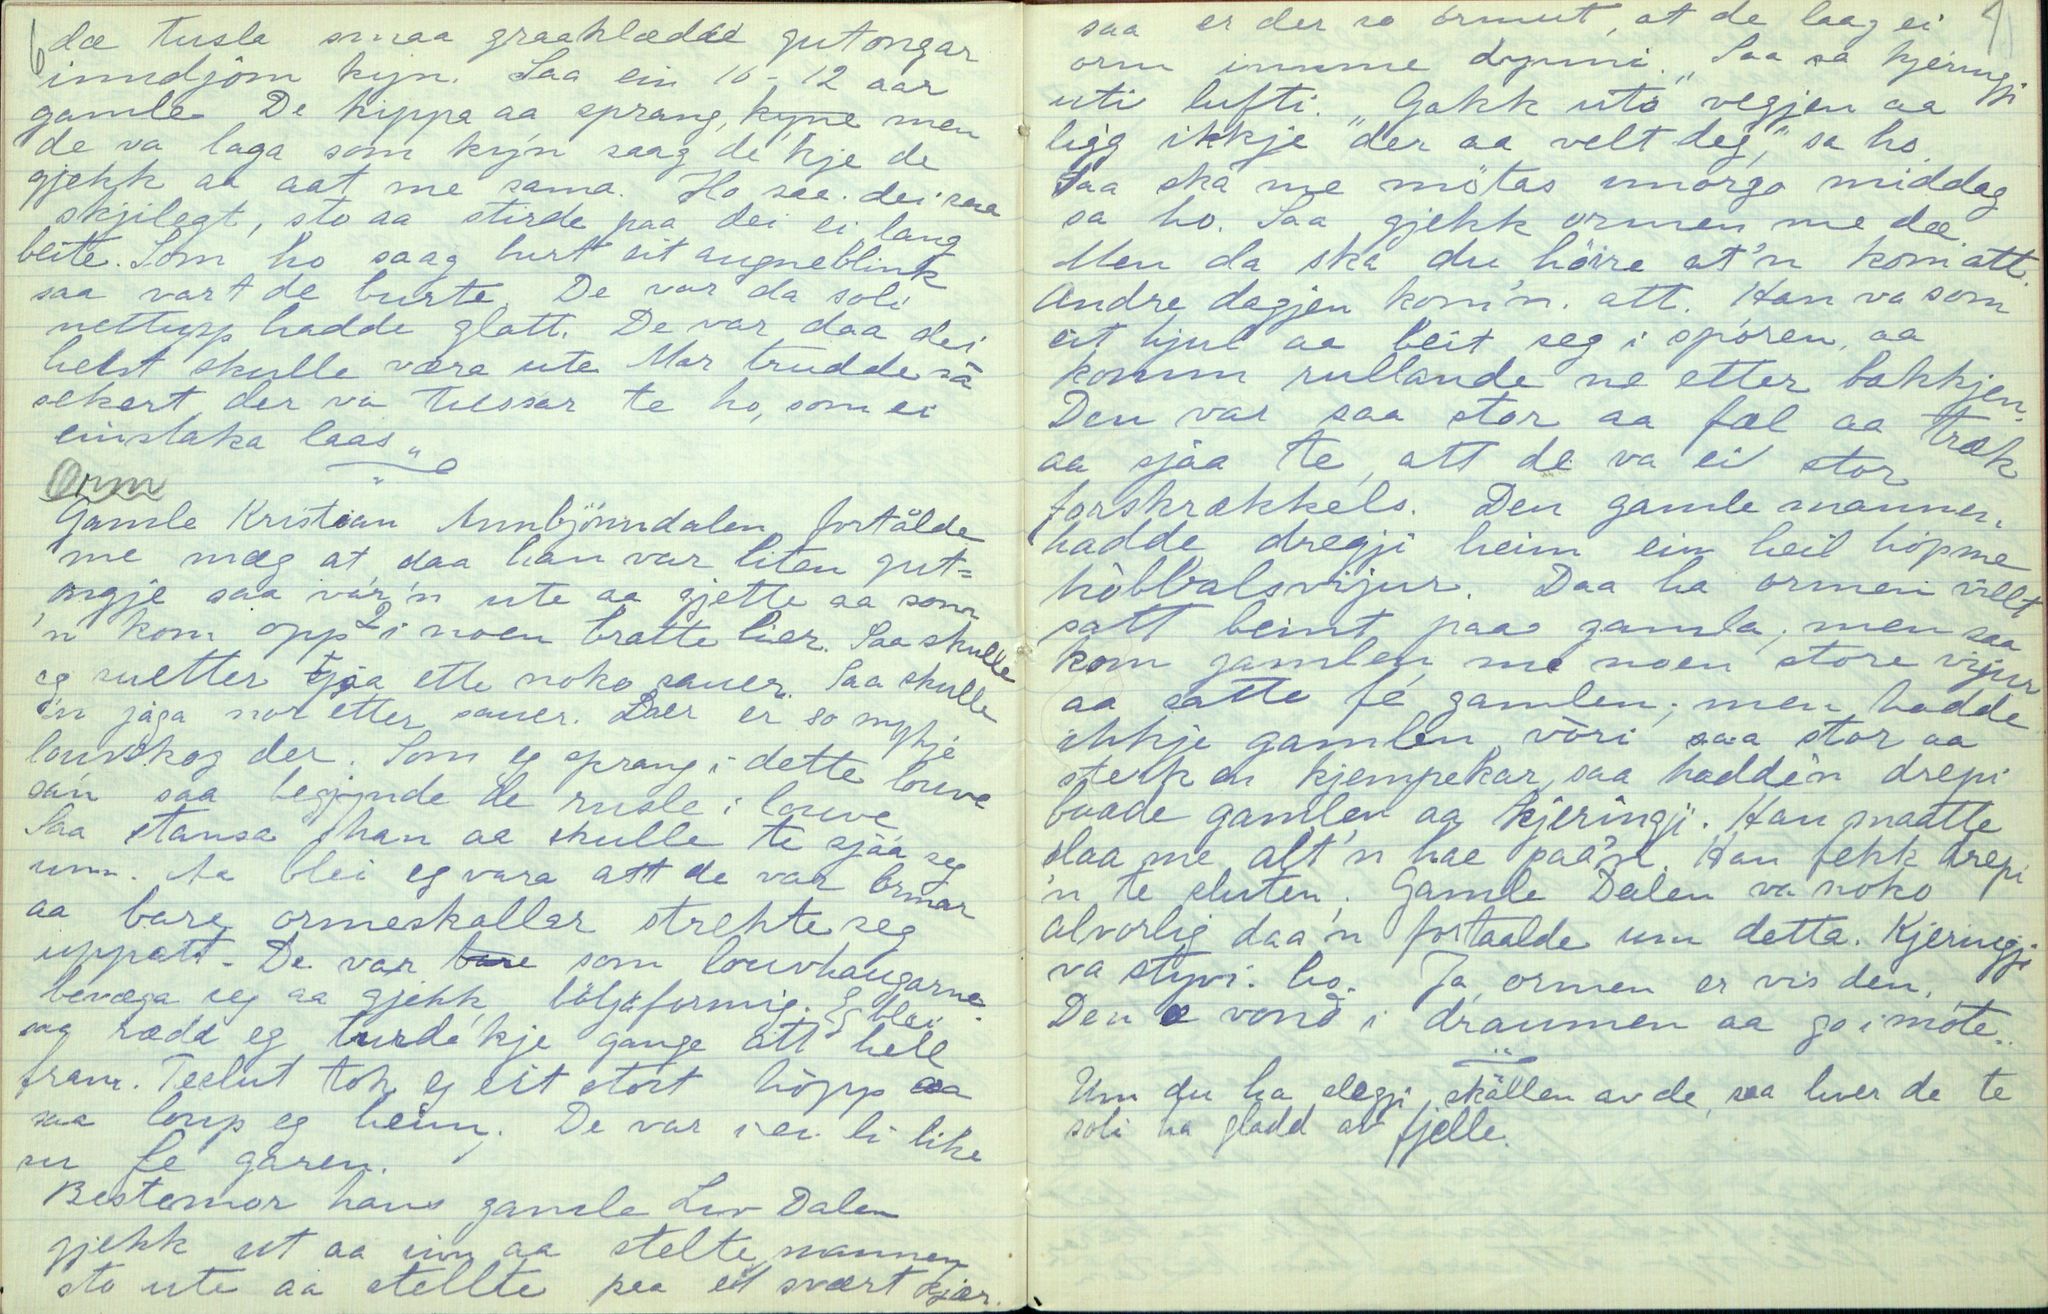 6
dæ tusla smaa graaklædde gutongar
inndjöm kyn. Saa ein 10-12 aar
gamle. De hippa aa sprang, kyne men
de va laga som kyn saag de'kje de
gjekk aa aat me sama. Ho saa dei saa
skjilegt, sto aa stirde paa dei ei lang
beite. Som ho saag burt eit augneblink
saa vart de burte. De var da soli
nettupp hadde glatt. De var daa dei
helst skulle væra ute. Mar trudde så
sekert der va tussar te ho, som ei
einstaka laas "
Orm
Gamle Kristian Annbjönndalen fortålde
me mæg at daa han var liten gut=
ongje saa vår'n ute aa gjette aa som
'n kom opp i noen bratte lier. Saa skulle
eg sutter jaa ette noko sauer. Saa skulle
'n jåga nor etter sauer. Daer er so mykje
louvskog der. Som eg sprang i dette louve
sån saa begjynde de rusle i louve
Saa stansa han aa skulle te sjåa seg
umm. Aa blei eg vara att de var ormar
aa bare ormeskallar strekte seg
uppatt. De var bare som louvhaugarne
bevæga seg aa gjekk böljeformig. Eg blei
saa rædd eg turde'kje gange att hell
fram. Teslut tok eg eit stort höpp aa
saa loup eg heim. De var i ei li like
su fe garen.
Bestemor hans gamle Liv Dalen
gjekk ut aa inn aa stelte, mannen
sto ute aa stellte paa eit svært kjær.
7
saa er der so ormut, at de laag ei
orm innme dynni. "Saa sa kjeringji
uti lufti. Gakk uti vegjen aa
ligg ikkje der aa velt deg," sa ho.
Saa ska me mötas imorgo middag
sa ho. Saa gjekk ormen me dæ.
Men da ska du höire at'n kom att.
Andre dagjen kom'n att. Han va som
eit hjul aa beit seg i sporen, aa
komm rullande ne etter bakkjen.
Den var saa stor aa fæl aa træk
aa sjåa te, att de va ei stor
forskrækkels. Den gamle mannen
hadde dregji heim ein heil hòp me
hòbbalsvijur. Daa ha ormen villt
satt beint paa gamla, men saa
kom gamlen me noen store vijur
aa satte fé gamlen; men hadde
ikkje gamlen vòri saa stor aa
sterk en kjempekar, saa hadde'n drepi
baade gamlen aa kjeringji. Han maatte
slaa me alt'n hae paa'n. Han fekk drepi
'n te sluten. Gamle Dalen va noko
alvorlig daa'n fortaalde um detta. Kjeringji
va styvi ho. Ja ormen er vis den.
Den e vond i draumen aa go i möte.
"
Um du ha slegji skållen av de, saa liver de te
soli ha gladd av fjelle.